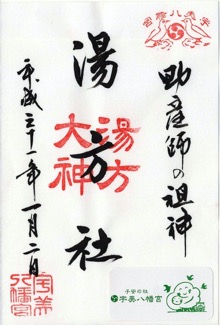 宇美八幡宮
助産師の祖神
湯方社
湯方
大神
平成三十一年一月二日
宇美
八幡宮
子安の杜
宇美八幡宮